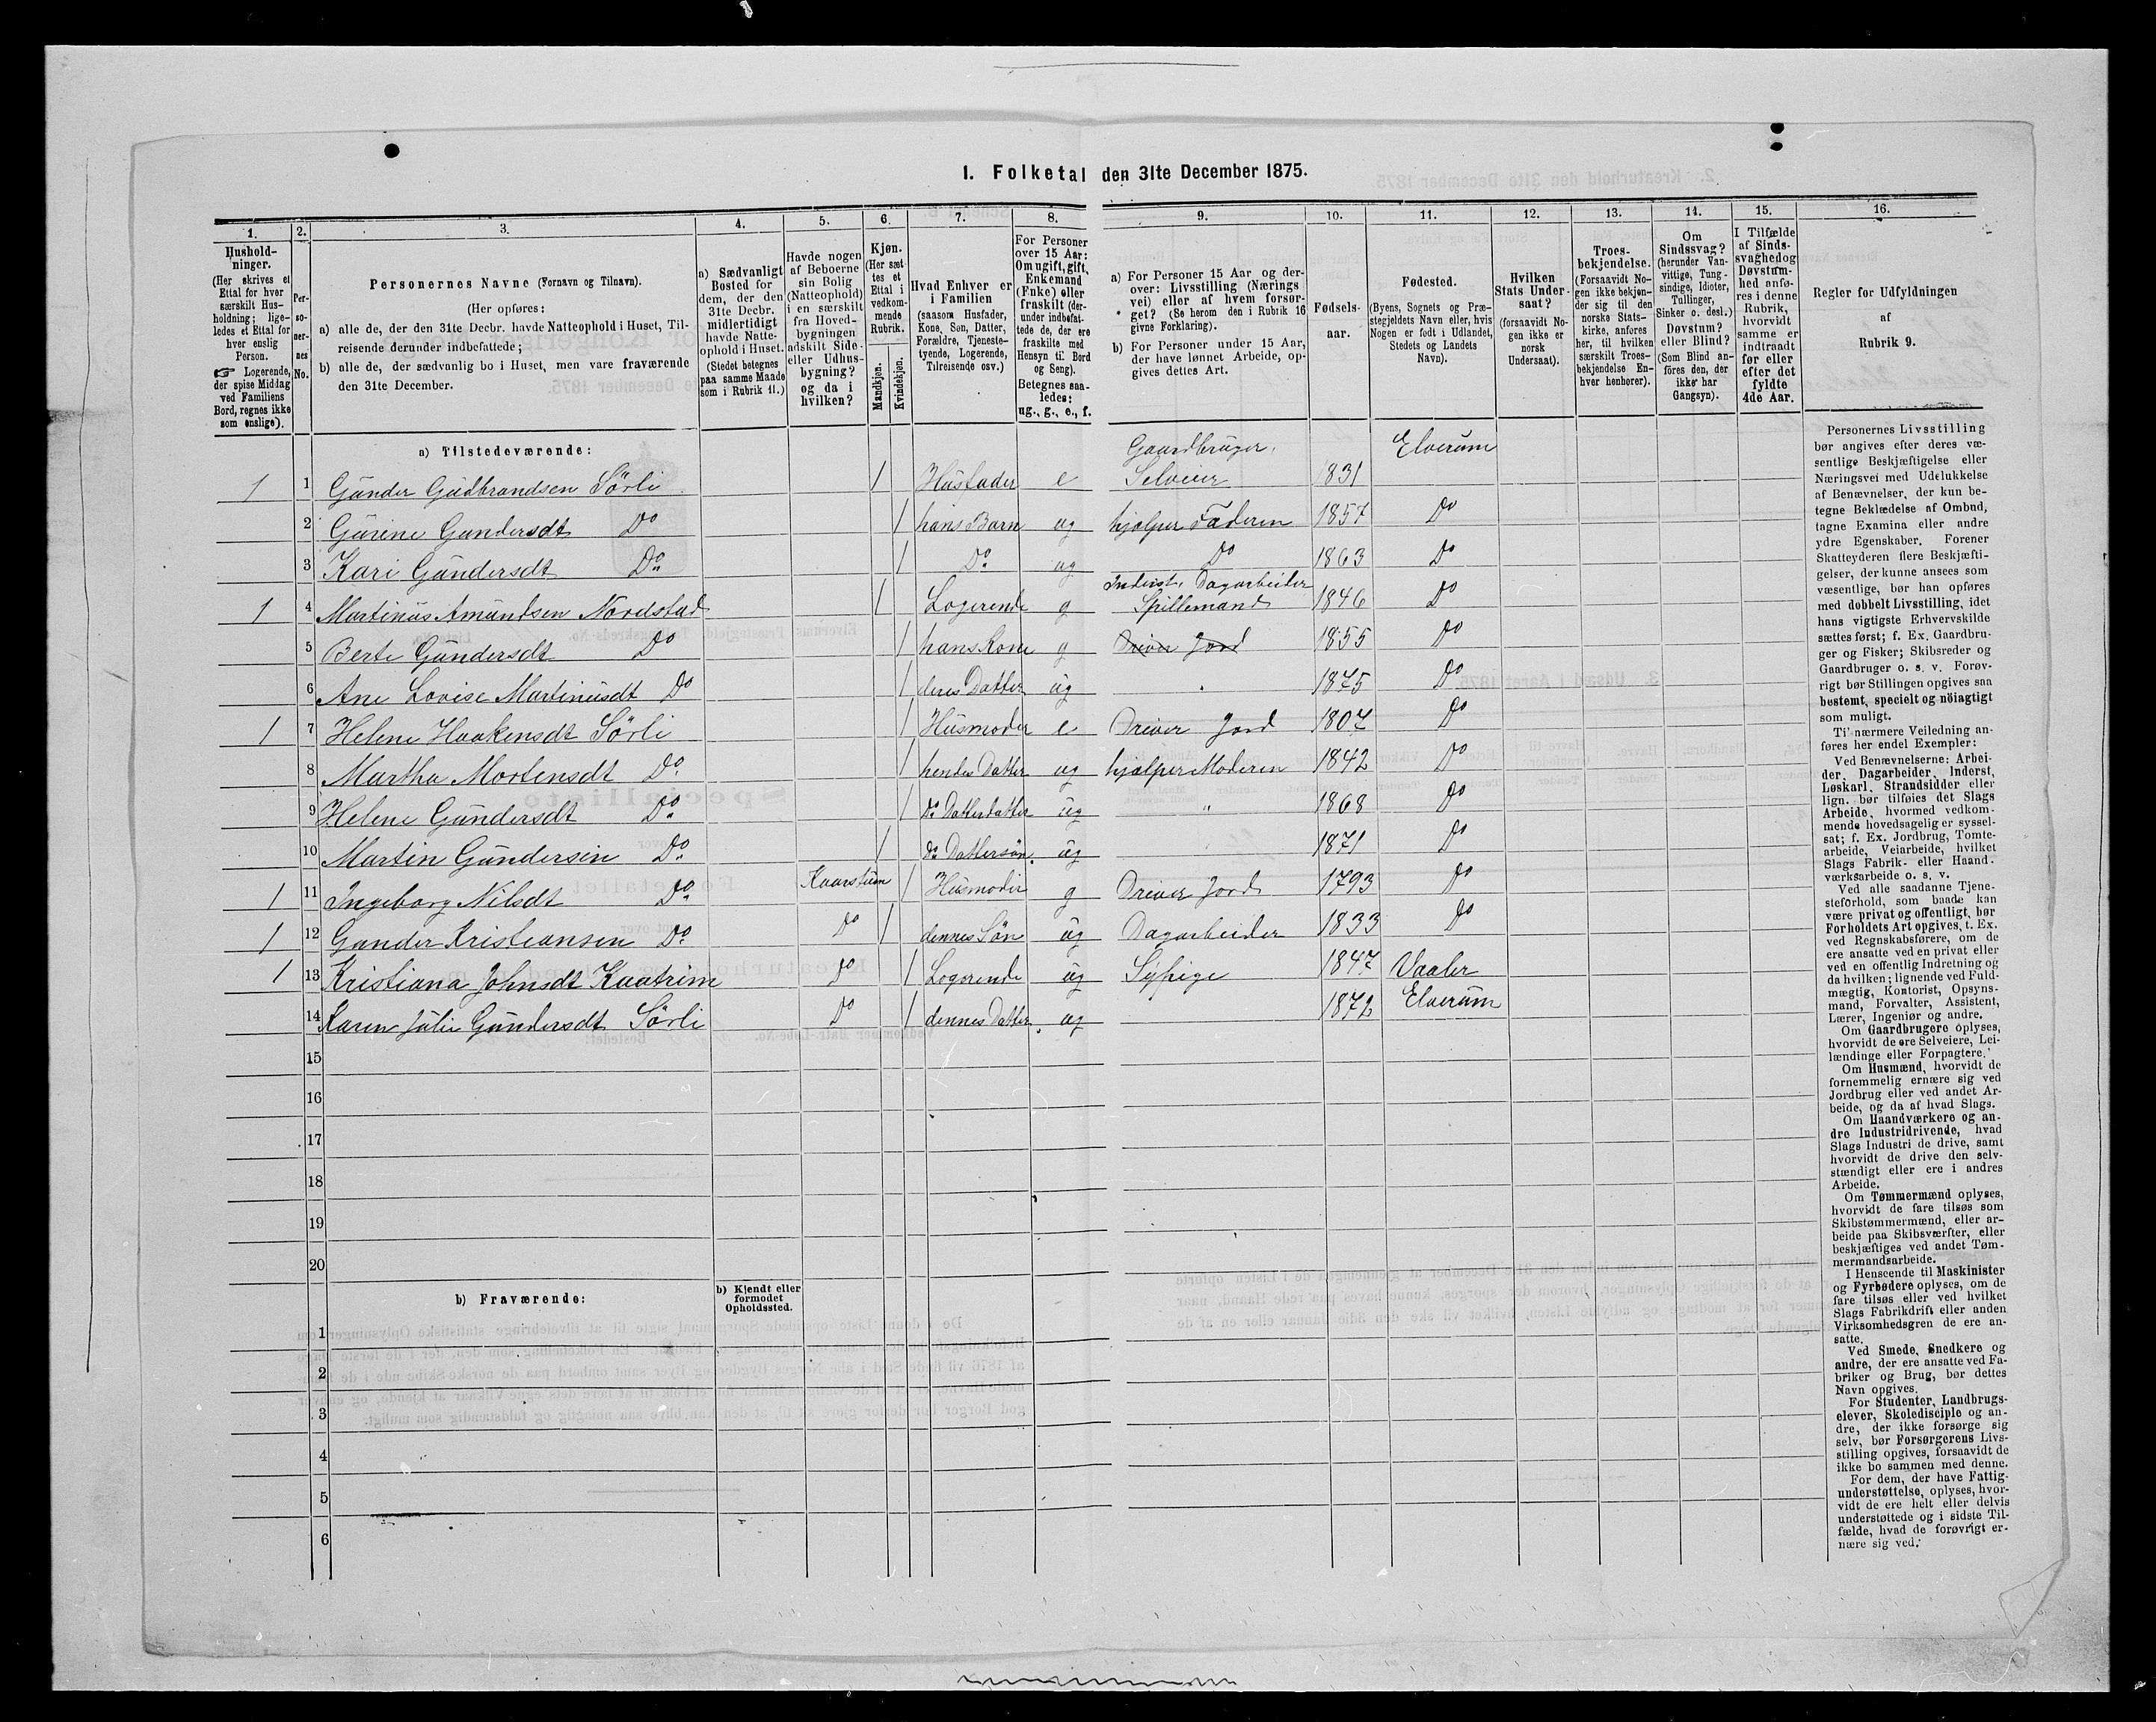 1. Folketal den 31te December 1875.
1. 2. 3. 4. 5. 6. 7. 8. 9. 10. 11. 12. 13. 14. 15. 16.
Hushold-
ninger.
(Her skrives et
Ettal for hver
særskilt Hus-
holdning; lige-
ledes et Ettal for
hver enslig
Person.
☞ Logerende,
der spise Middag
ved Familiens
Bord, regnes ikke
som enslige).
Per-
so-
ner-
nes
No.
Personernes Navne (Fornavn og Tilnavn).
(Her opføres:
a) alle de, der den 31te Decbr. havde Natteophold i Huset, Til-
reisende derunder indbefattede;
b) alle de, der sædvanlig bo i Huset, men vare fraværende
den 31te December.
a) Sædvanligt
Bosted for
dem, der den
31te Decbr.
midlertidigt
havde Natte-
ophold i Huset.
(Stedet betegnes
paa samme Maade
som i Rubrik 11.)
Havde nogen
af Beboerne
sin Bolig
(Natteophold)
i en særskilt
fra Hoved-
bygningen
adskilt Side-
eller Udhus-
bygning?
og da i
hvilken?
Kjøn.
(Her sæt-
tes et
Ettal i
vedkom-
mende
Rubrik.
Mandkjøn.
Kvindekjøn.
Hvad Enhver er
i Familien
(saasom Husfader,
Kone, Søn, Datter,
Forældre, Tjeneste-
tyende, Logerende,
Tilreisende osv.)
For Personer
over 15 Aar:
Om ugift, gift,
Enkemand
(Enke) eller
fraskilt (der-
under indbefat-
tede de, der ere
fraskilte med
Hensyn til Bord
og Seng).
Betegnes saa-
ledes:
ug., g., e., f.
a) For Personer 15 Aar og der-
over: Livsstilling (Nærings
vei) eller af hvem forsør-
get? (Se herom den i Rubrik 16
givne Forklaring).
b) For Personer under 15 Aar,
der have lønnet Arbeide, op-
gives dettes Art.
Fødsels-
aar.
Fødested.
(Byens, Sognets og Præ-
stegjeldets Navn eller, hvis
Nogen er født i Udlandet,
Stedets og Landets
Navn).
Hvilken
Stats Under-
saat?
(forsaavidt No-
gen ikke er
norsk
Undersaat).
Troes-
bekjendelse.
(Forsaavidt No-
gen ikke bekjen-
der sig til den
norske Stats-
kirke, anføres
her, til hvilken
særskilt Troes-
bekjendelse En-
hver henhører).
Om
Sindssvag?
(herunder Van-
vittige, Tung-
sindige, Idioter,
Tullinger,
Sinker o. desl.)
Døvstum?
eller Blind?
(Som Blind an-
føres den, der
ikke har
Gangsyn).
I Tilfælde
af Sinds-
svaghed og
Døvstum-
hed anfø-
res i denne
Rubrik,
hvorvidt
samme er
indtraadt
før eller
efter det
fyldte
4de Aar.
Regler for Udfyldningen
af
Rubrik 9.
a) Tilstedeværende:
Gaardbruger,
1 1 Gunder Gudbrandsen Sörli 1 Husfader e Selveier 1831 Elverum
2 Gurine Gundersdt Do 1 hans Barn ug hjælper Faderen 1857 Do
3 Kari Gundersdt Do 1 Do ug Do 1863 Do
Inderst, Dagarbeider
1 4 Martinus Amundsen Nordstad 1 Logerende g Spillemand 1846 Do
5 Berte Gundersdt Do 1 hans Kone g Driver Jord 1855 Do
6 Ane Lovise Martinusdt Do 1 deres Datter ug 1875 Do
1 7 Helene Haakensdt Sörli 1 Husmoder e Driver Jord 1807 Do
8 Martha Mortensdt Do 1 hendes Datter ug hjælper Moderen 1842 Do
9 Helene Gundersdt Do 1 Do Datterdatter ug " 1868 Do
10 Martin Gundersen Do 1 Do Dattersøn ug 1871 Do
1 11 Ingeborg Nilsdt Do 1 Husmoder g Driver Jord 1793 Do
1 12 Gunder Kristiansen Do Do 1 dennes Søn ug Dagarbeider 1833 Do
1 13 Kristiana Johnsdt Do 1 Logerende ug Sypige 1847 Vaaler
14 Karen Julie Gundersdt Sörli Do 1 dennes Datter ug 1872 Elverum
15
16
17
18
19
20
b) Fraværende:
b) Kjendt eller
formodet
Opholdssted.
1
2
3
4
5
6
Personernes Livsstilling
bør angives efter deres væ-
sentlige Beskjæftigelse eller
Næringsvei med Udelukkelse
af Benævnelser, der kun be-
tegne Beklædelse af Ombud,
tagne Examina eller andre
ydre Egenskaber. Forener
Skatteyderen flere Beskjæfti-
gelser, der kunne ansees som
væsentlige, bør han opføres
med dobbelt Livsstilling, idet
hans vigtigste Erhvervskilde
sættes først; f. Ex. Gaardbru-
ger og Fisker; Skibsreder og
Gaardbruger o. s. v. Forøv-
rigt bør Stillingen opgives saa
bestemt, specielt og nöiagtigt
som muligt.
Til nærmere Veiledning an-
føres her endel Exempler:
Ved Benævnelserne: Arbei-
der, Dagarbeider, Inderst,
Løskarl, Strandsidder eller
lign. bør tilføies det Slags
Arbeide, hvormed vedkom-
mende hovedsagelig er syssel-
sat; f. Ex. Jordbrug, Tomte-
arbeide, Veiarbeide, hvilket
Slags Fabrik- eller Haand-
værksarbeide o. s. v.
Ved alle saadanne Tjene-
steforhold, som baade kan
være privat og offentligt, bør
Forholdets Art opgives, t. Ex.
ved Regnskabsførere, om de
ere ansatte ved en privat eller
ved en offentlig Indretning og
da hvilken; lignende ved Fuld-
mægtig, Kontorist, Opsyns-
mand, Forvalter, Assistent,
Lærer, Ingeniør og andre.
Om Gaardbrugere oplyses,
hvorvidt de ere Selveiere, Lei-
lændinge eller Forpagtere.
Om Husmænd, hvorvidt de
fornemmelig ernære sig ved
Jordbrug eller ved andet Ar-
beide, og da af hvad Slags.
Om Haandværkere og an-
dre Industridrivende, hvad
Slags Industri de drive, samt
hvorvidt de drive den selv-
stændigt eller ere i andres
Arbeide.
Om Tømmermænd oplyses,
hvorvidt de fare tilsøs som
Skibstømmermænd, eller ar-
beide paa Skibsværfter, eller
beskjæftiges ved andet Tøm-
mermandsarbeide.
I Henseende til Maskinister
og Fyrbødere oplyses, om de
fare tilsøs eller ved hvilket
Slags Fabrikdrift eller anden
Virksomhedsgren de ere an-
satte.
Ved Smede, Snedkere og
andre, der ere ansatte ved Fa-
briker og Brug, bør dettes
Navn opgives.
For Studenter, Landbrugs-
elever, Skoledisciple og an-
dre, der ikke forsørge sig
selv, bør Forsørgerens Livs-
stilling opgives, forsaavidt de
ikke bo sammen med denne.
For dem, der have Fattig-
understøttelse, oplyses, hvor-
vidt de ere helt eller delvis
understøttede og i sidste Til-
fælde, hvad de forøvrigt er-
nære sig ved.